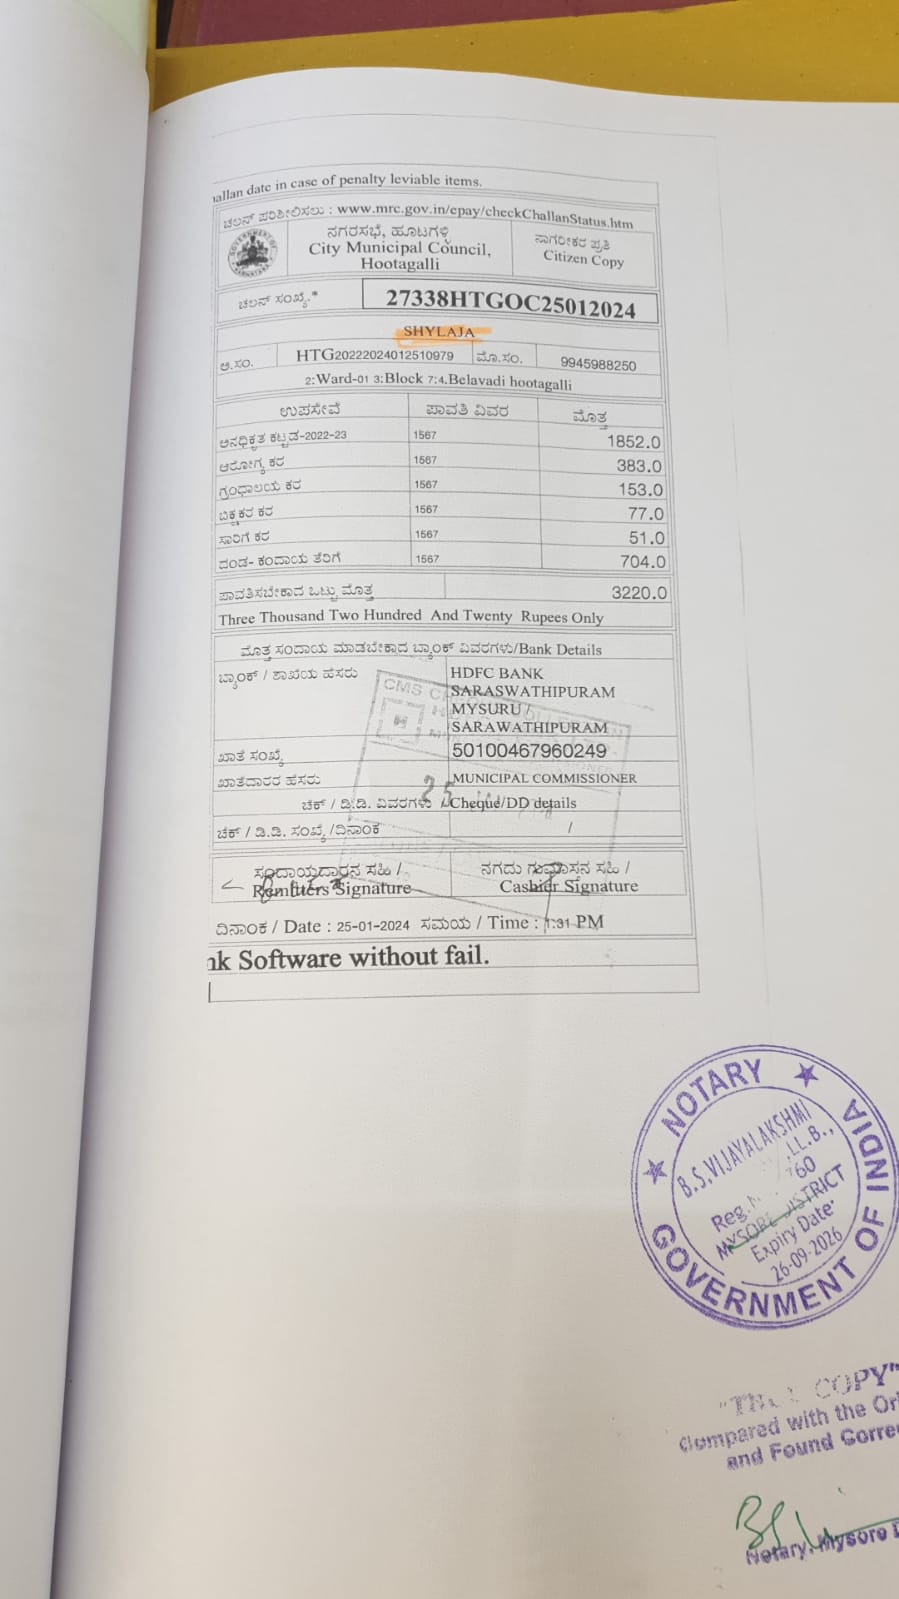 allan date in case of penalty leviable items.
ಚಲನ್ ಪರಿಶೀಲಿಸಲು : www.mrc.gov.in/epay/checkChallanStatus.htm
ನಗರಸಭೆ, ಹೂಟಗಳ್ಳಿ
City Municipal Council,
Hootagalli
ನಾಗರೀಕರ ಪ್ರತಿ
Citizen Copy
ಚಲನ್ ಸಂಖ್ಯೆ.* 27338HTGOC25012024
SHYLAJA
ಅ.ಸಂ. HTG20222024012510979 ಮೊ.ಸಂ. 9945988250
2:Ward-01 3:Block 7:4.Belavadi hootagalli
ಉಪಸೇವೆ ಪಾವತಿ ವಿವರ ಮೊತ್ತ
ಅನಧಿಕೃತ ಕಟ್ಟಡ-2022-23 1567 1852.0
ಆರೋಗ್ಯ ಕರ 1567 383.0
ಗ್ರಂಥಾಲಯ ಕರ 1567 153.0
ಬಿಕ್ಷಕರ ಕರ 1567 77.0
ಸಾರಿಗೆ ಕರ 1567 51.0
ದಂಡ- ಕಂದಾಯ ತೆರಿಗೆ 1567 704.0
ಪಾವತಿಸಬೇಕಾದ ಒಟ್ಟು ಮೊತ್ತ 3220.0
Three Thousand Two Hundred And Twenty Rupees Only
ಮೊತ್ತ ಸಂದಾಯ ಮಾಡಬೇಕಾದ ಬ್ಯಾಂಕ್ ವಿವರಗಳು/Bank Details
ಬ್ಯಾಂಕ್ / ಶಾಖೆಯ ಹೆಸರು HDFC BANK
SARASWATHIPURAM
MYSURU /
SARAWATHIPURAM
ಖಾತೆ ಸಂಖ್ಯೆ 50100467960249
ಖಾತೆದಾರರ ಹೆಸರು MUNICIPAL COMMISSIONER
ಚೆಕ್ / ಡಿ.ಡಿ. ವಿವರಗಳು / Cheque/DD details
ಚೆಕ್ / ಡಿ.ಡಿ. ಸಂಖ್ಯೆ /ದಿನಾಂಕ /
ಸಂದಾಯದಾರನ ಸಹಿ /
Remitters Signature
ನಗದು ಗುಮಾಸನ ಸಹಿ /
Cashier Signature
ದಿನಾಂಕ / Date : 25-01-2024 ಸಮಯ / Time : 1:31 PM
nk Software without fail.
NOTARY
GOVERNMENT OF INDIA
B.S.VIJAYALAKSHMI
LL.B.,
Reg.
MYSORE DISTRICT
Expiry Date
26-09-2026
COPY"
Compared with the Or
and Found Corre
Notary, Mysore D